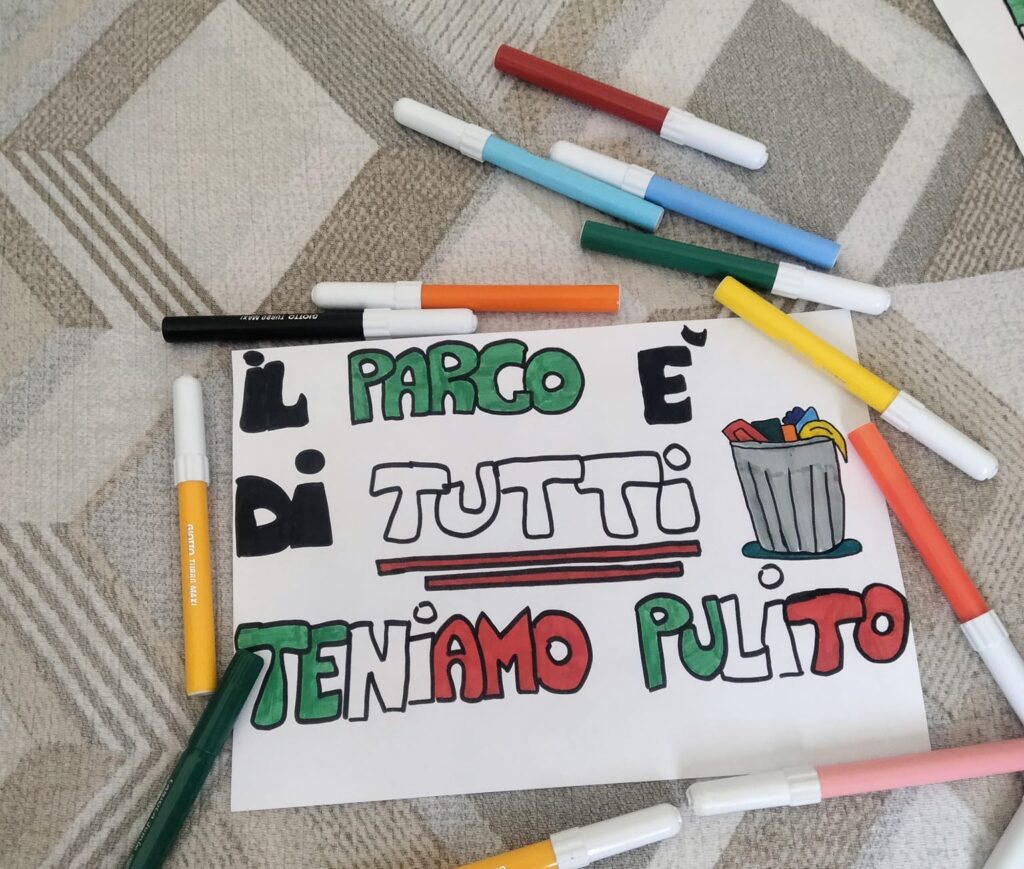 IL PARCO È
DI TUTTI
TENIAMO PULITO
GIOTTO TURBO MAXI
GIOTTO TURBO MAXI